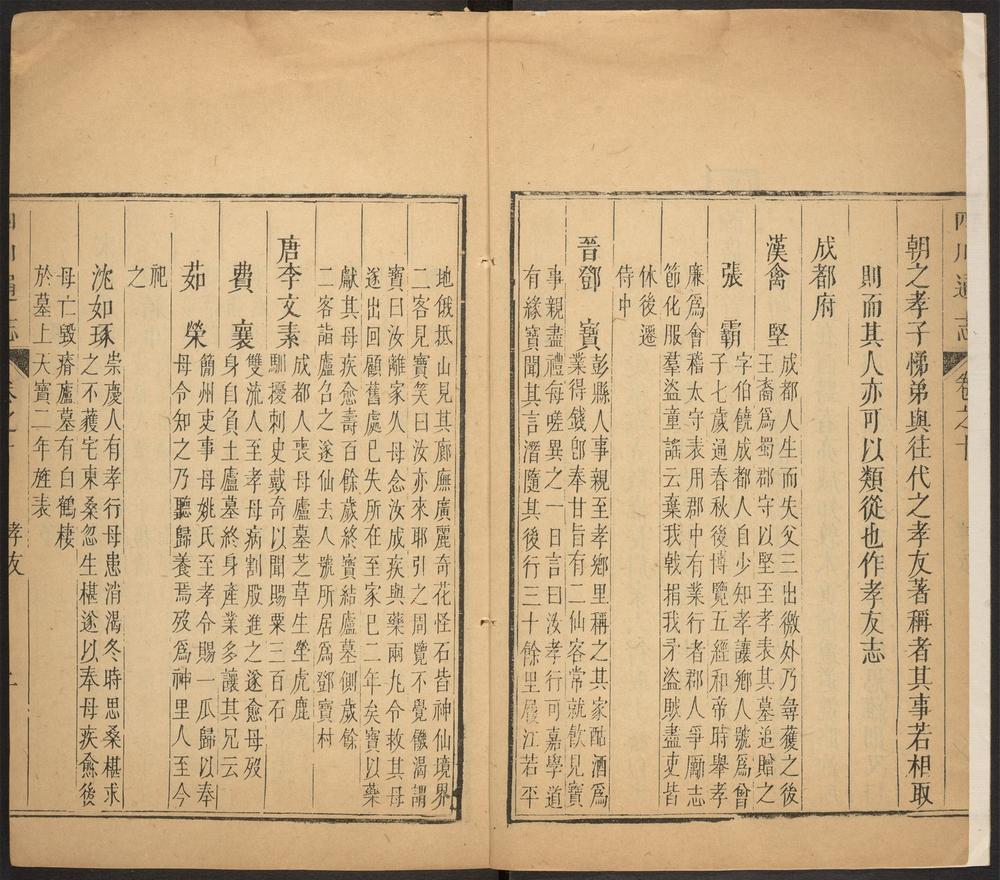 四川通志
卷之十
朝之孝子悌弟與往代之孝友著稱者其事若相取
則而其人亦可以類從也作孝友志
成都府
漢禽堅
成都人生而失父三出徼外乃尋獲之後
王裔爲蜀郡守以堅至孝表其墓追贈之
張霸
字伯饒成都人自少知孝讓鄉人號爲曾
子七歲通春秋後博覽五經和帝時舉孝
廉爲會稽太守表用郡中有業行者郡人爭勵志
節化服羣盜童謠云棄我戟捐我矛盜賊盡吏皆
休後遷
侍中
晉鄧寶
彭縣人事親至孝鄉里稱之其家酤酒爲
業得錢卽奉甘旨有二仙客常就飲見寶
事親盡禮每嗟異之一日言曰汝孝行可嘉學道
有緣寶聞其言潛隨其後行三十餘里履江若平
地俄抵山見其廊廡廣麗奇花怪石皆神仙境界
二客見寶笑曰汝亦來耶引之周覽不覺饑渴謂
寶曰汝離家久母念汝成疾與藥兩丸令救其母
遂出回顧舊處已失所在至家已二年矣寶以藥
獻其母疾愈壽百餘歲終寶結廬墓側歲餘
二客詣廬召之遂仙去人號所居爲鄧寶村
唐李文素
成都人喪母廬墓芝草生塋虎鹿
馴擾刺史戴奇以聞賜粟三百石
費襄
雙流人至孝母病割股進之遂愈母歿
身自負土廬墓終身產業多讓其兄云
茹榮
簡州吏事母姚氏至孝令賜一瓜歸以奉
母令知之乃聽歸養焉歿爲神里人至今
祀
之
沈如琢
崇慶人有孝行母患消渴冬時思桑椹求
之不蒦宅東桑忽生椹遂以奉母疾愈後
母亡毀瘠廬墓有白鶴棲
於墓上天寶二年旌表
孝友
二